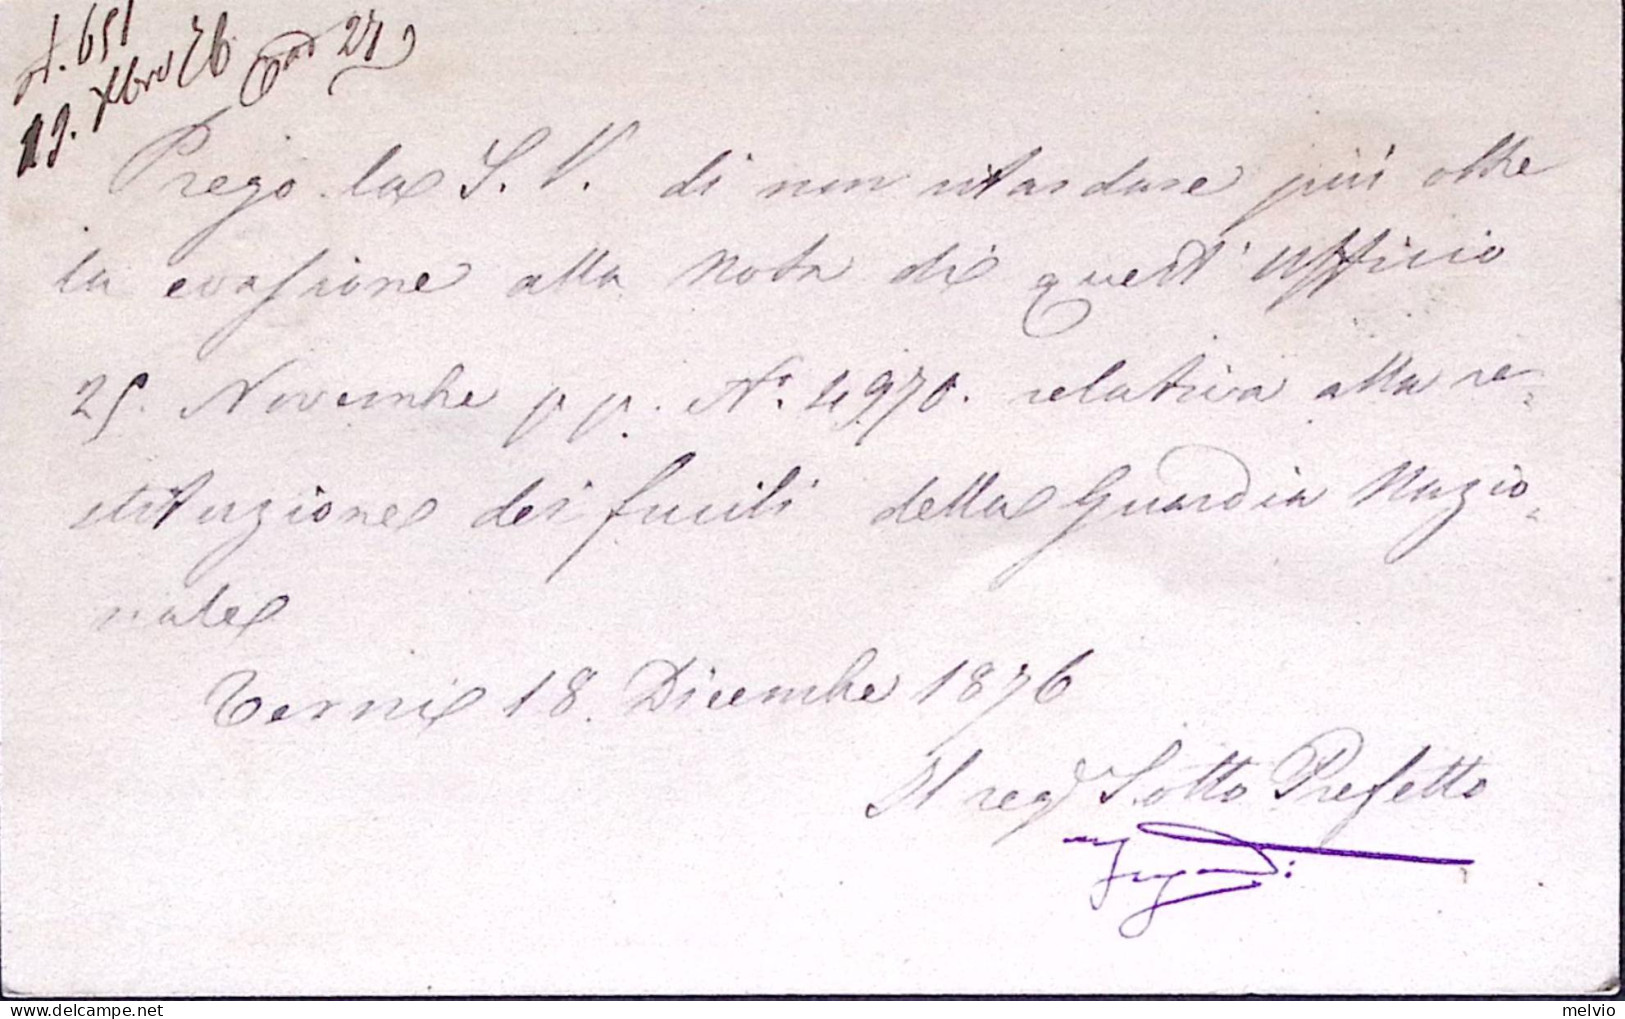 N. 651
19. Xbre 76
Prego la S. V. di non ritardare più oltre
la evasione alla Nota di quest' Ufficio
25. Novembre p p. N.° 4970. relativa alla re=
stituzione dei fucili della Guardia Nazio=
nale
Terni 18. Dicembre 1876
Il reg° Sotto Prefetto
melvio